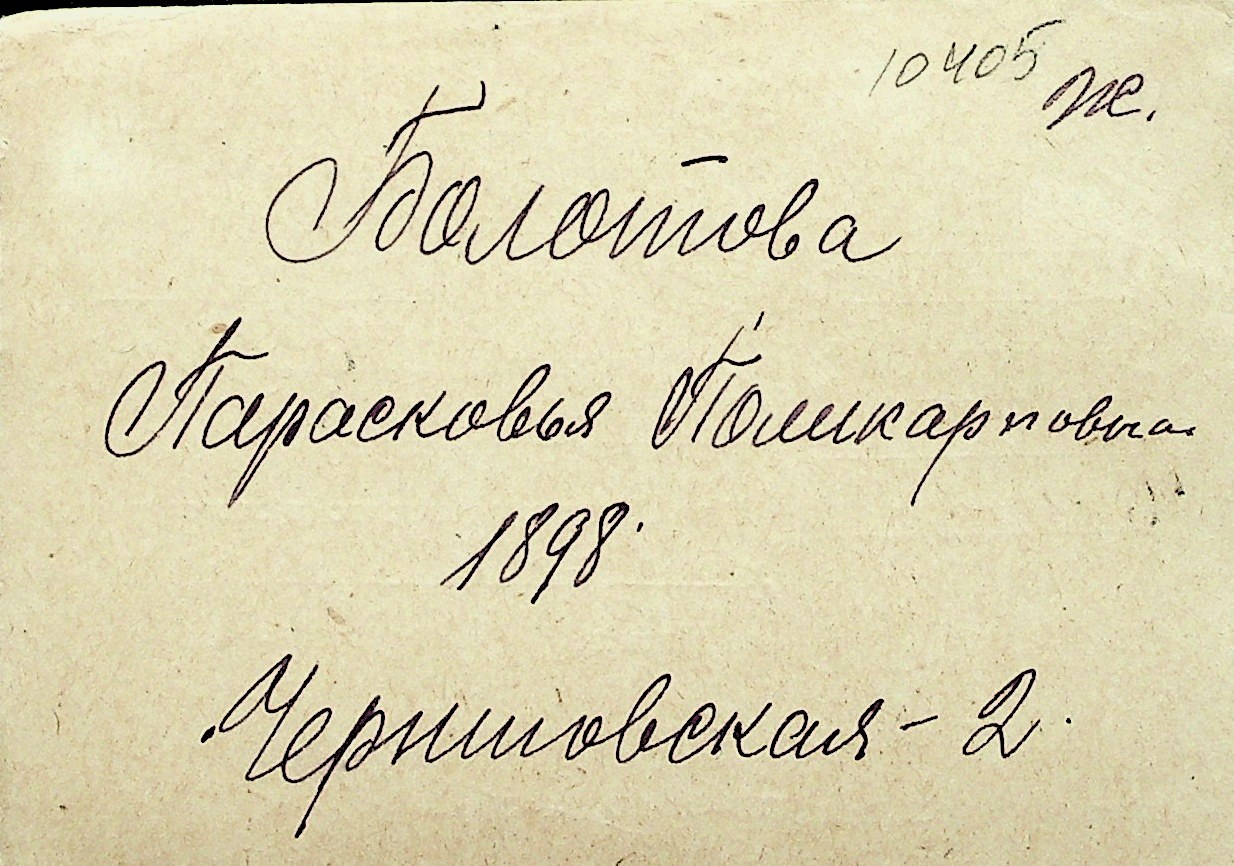 10405 Ж.
Болотова
Парасковья Поликарповна
1898.
Черниговская - 2.